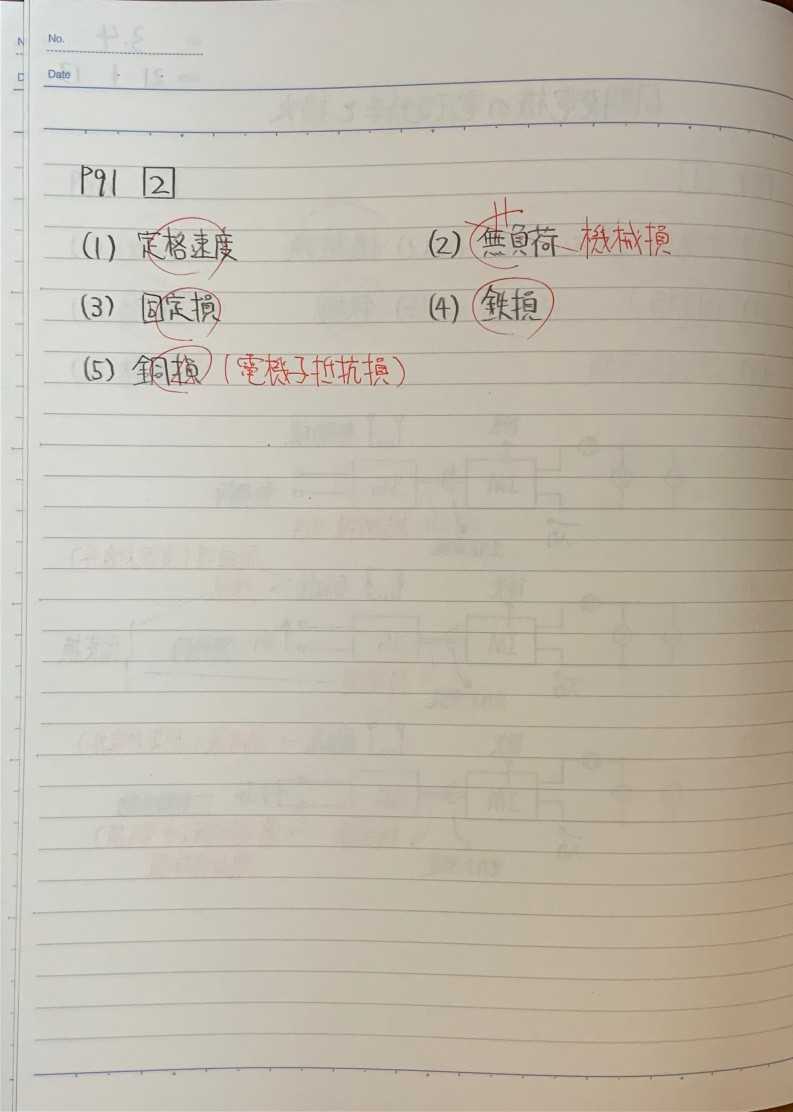 No.
Date
P91 2
(1) 定格速度 (2) 無負荷、機械損
(3) 固定損 (4) 鉄損
(5) 銅損 (電機子抵抗損)